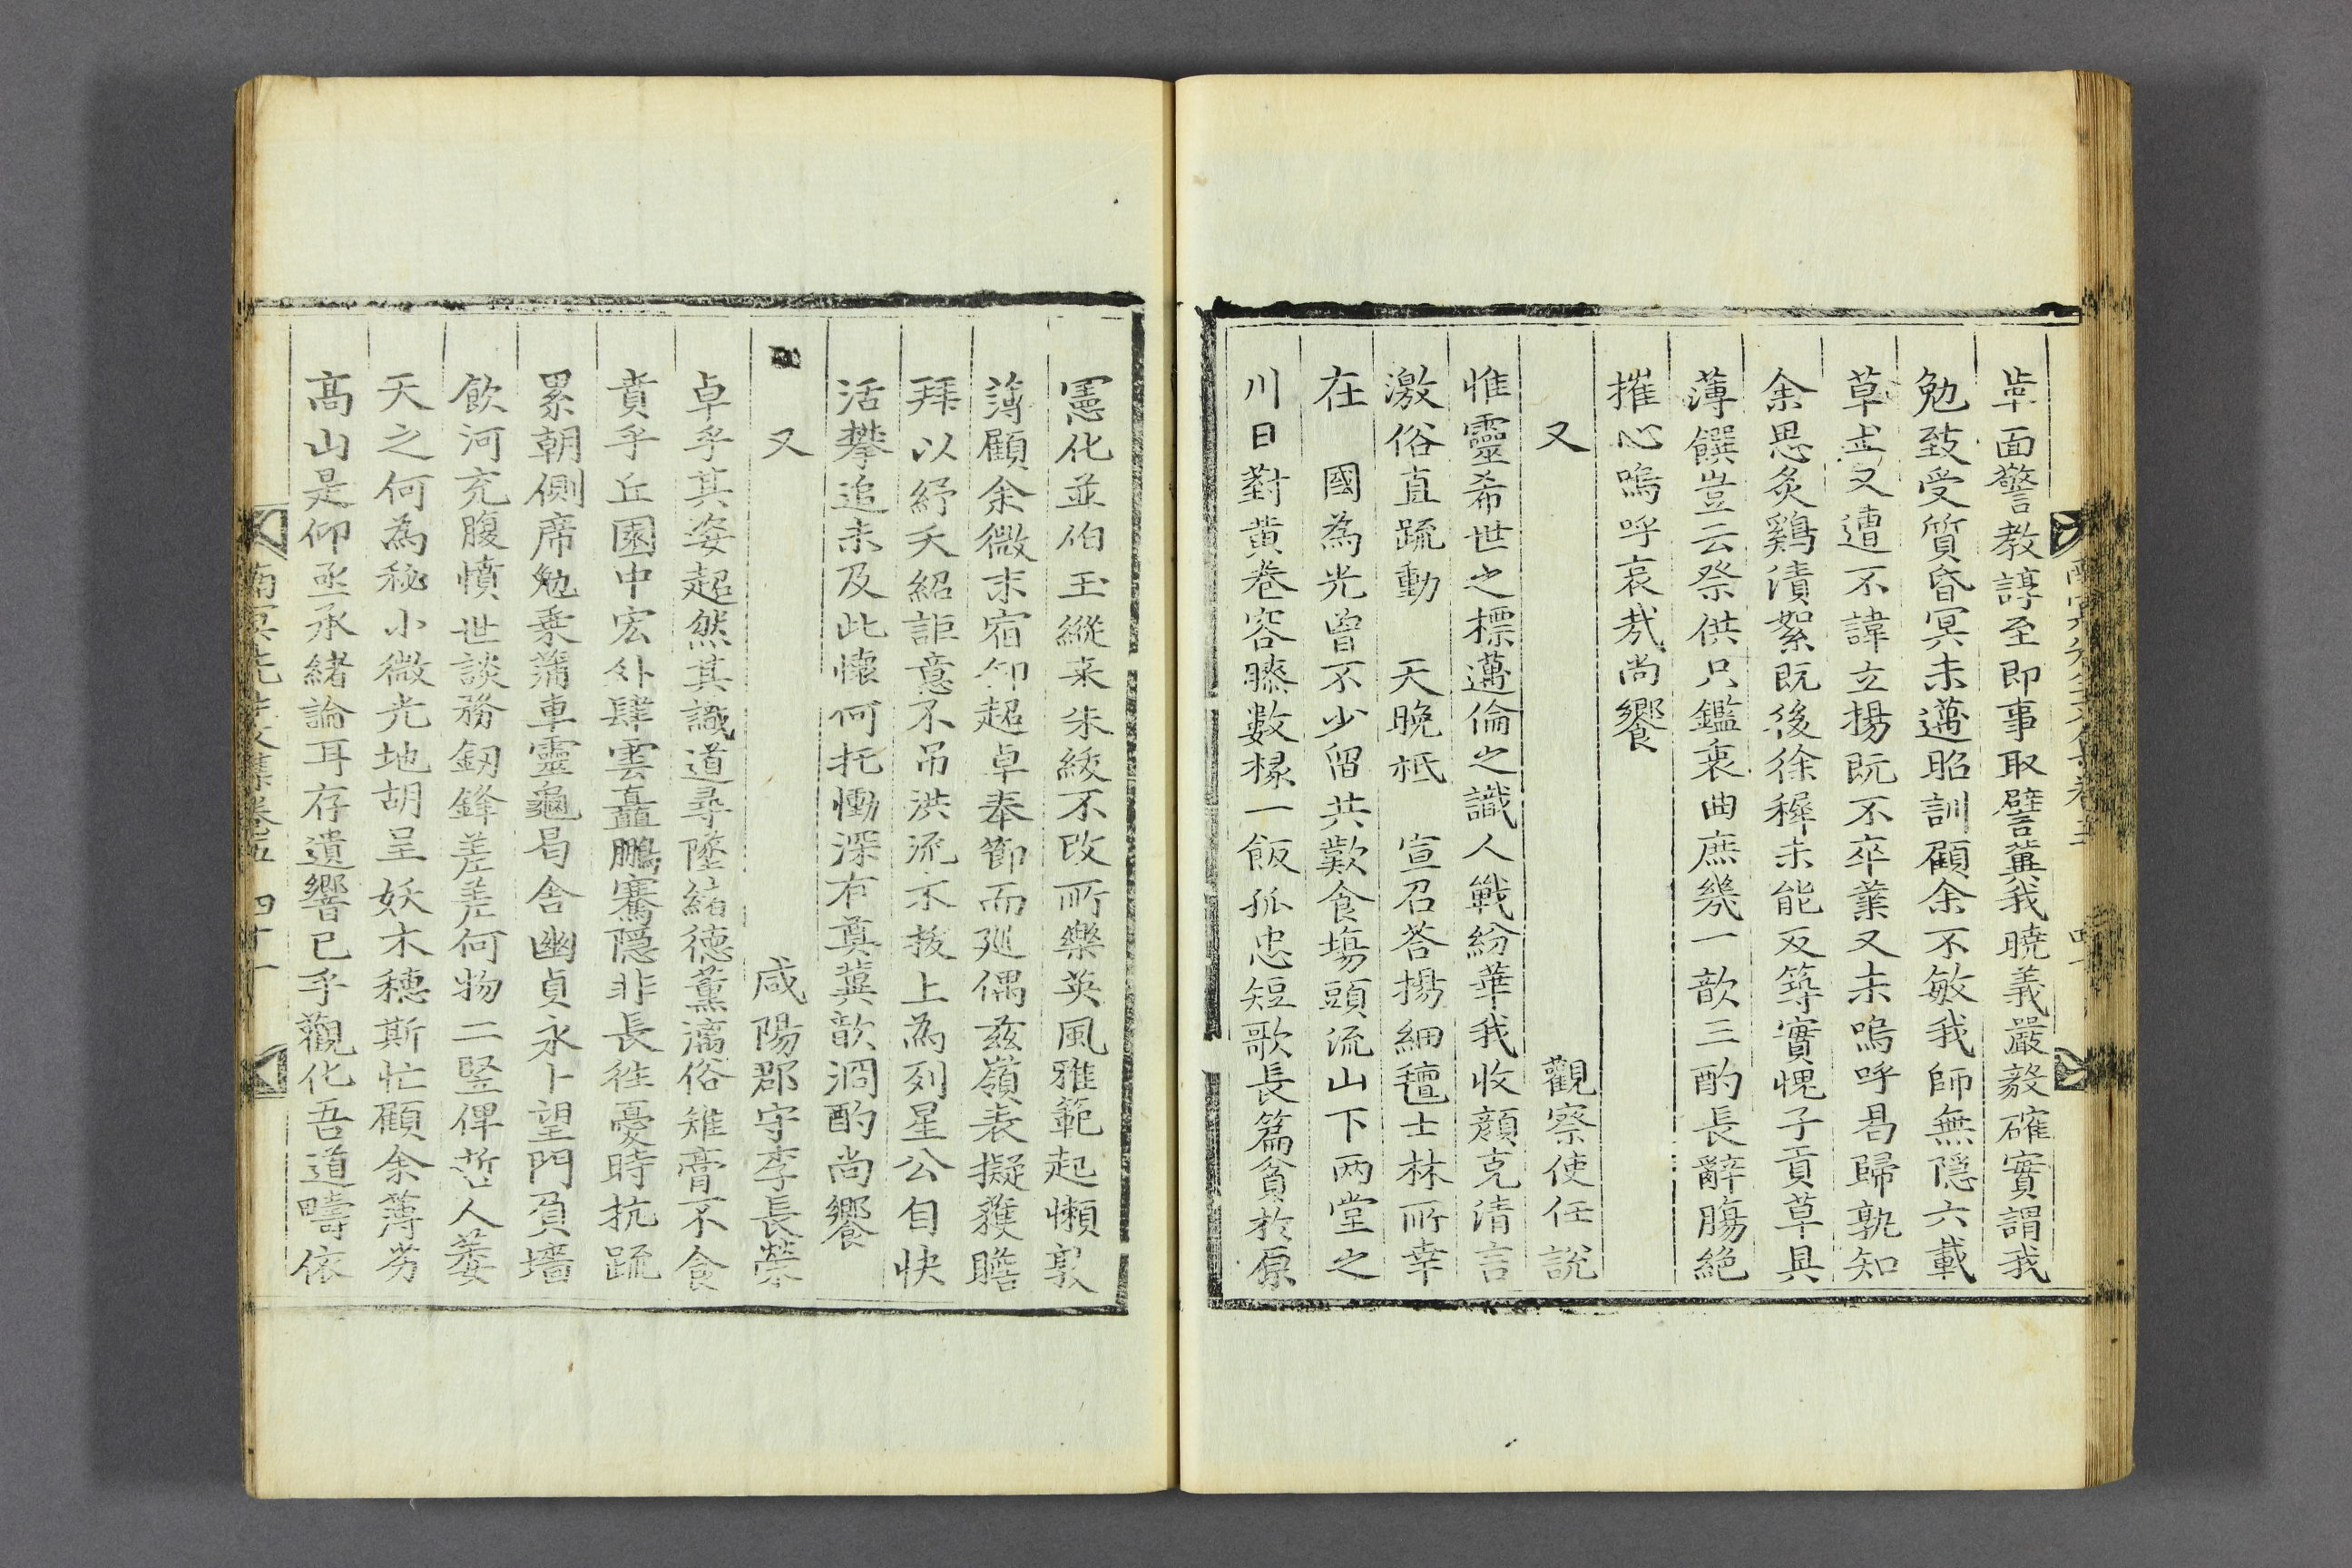 牟面警教諄至即事取譬冀我曉義嚴毅確實謂我
勉致受質昏冥未邁昭訓顧余不敏我師無隱六載
草 又遭不諱立揚旣不卒業又未嗚呼曷歸孰知
余思炙鷄漬絮旣後徐穉未能反築實愧子貢草具
薄饌豈云祭供只鑑衷曲庶幾一歆三酌長辭膓絕
摧心嗚呼哀㢤尚饗
又 觀察使任說
惟靈希世之標邁倫之識人戰紛華我收顏克清言
激俗直䟽動 天晚祇 宣召荅揚細氊士林所幸
在 國為光曾不少留共歎食塲頭流山下兩堂之
川日對黃卷容膝數椽一飯孤忠短歌長篇貧於原
憲化並伯玉縱来朱紱不改所樂英風雅範起懶敦
薄顧余微末宿仰超卓奉節而廵偶玆嶺表擬獲瞻
拜以紓夭紹詎意不吊洪流不拔上為列星公自快
活攀追未及此懷何托慟深有奠冀歆泂酌尚饗
又 咸陽郡守李長榮
卓乎其姿超然其識道尋墜緒德薰漓俗雉膏不食
賁乎丘園中宏外肆雲矗鵬騫隱非長徃憂時抗䟽
累朝側席勉乘蒲車靈龜曷舍幽貞永卜望門負墻
飲河充腹憤世談務釼鋒差差何物二竪俾㤠人萎
天之何為秘小微光地胡呈妖木穗斯忙顧余薄劣
髙山是仰亟承緒論耳存遺響已乎觀化吾道疇依
南冥先生文集卷五 四十一